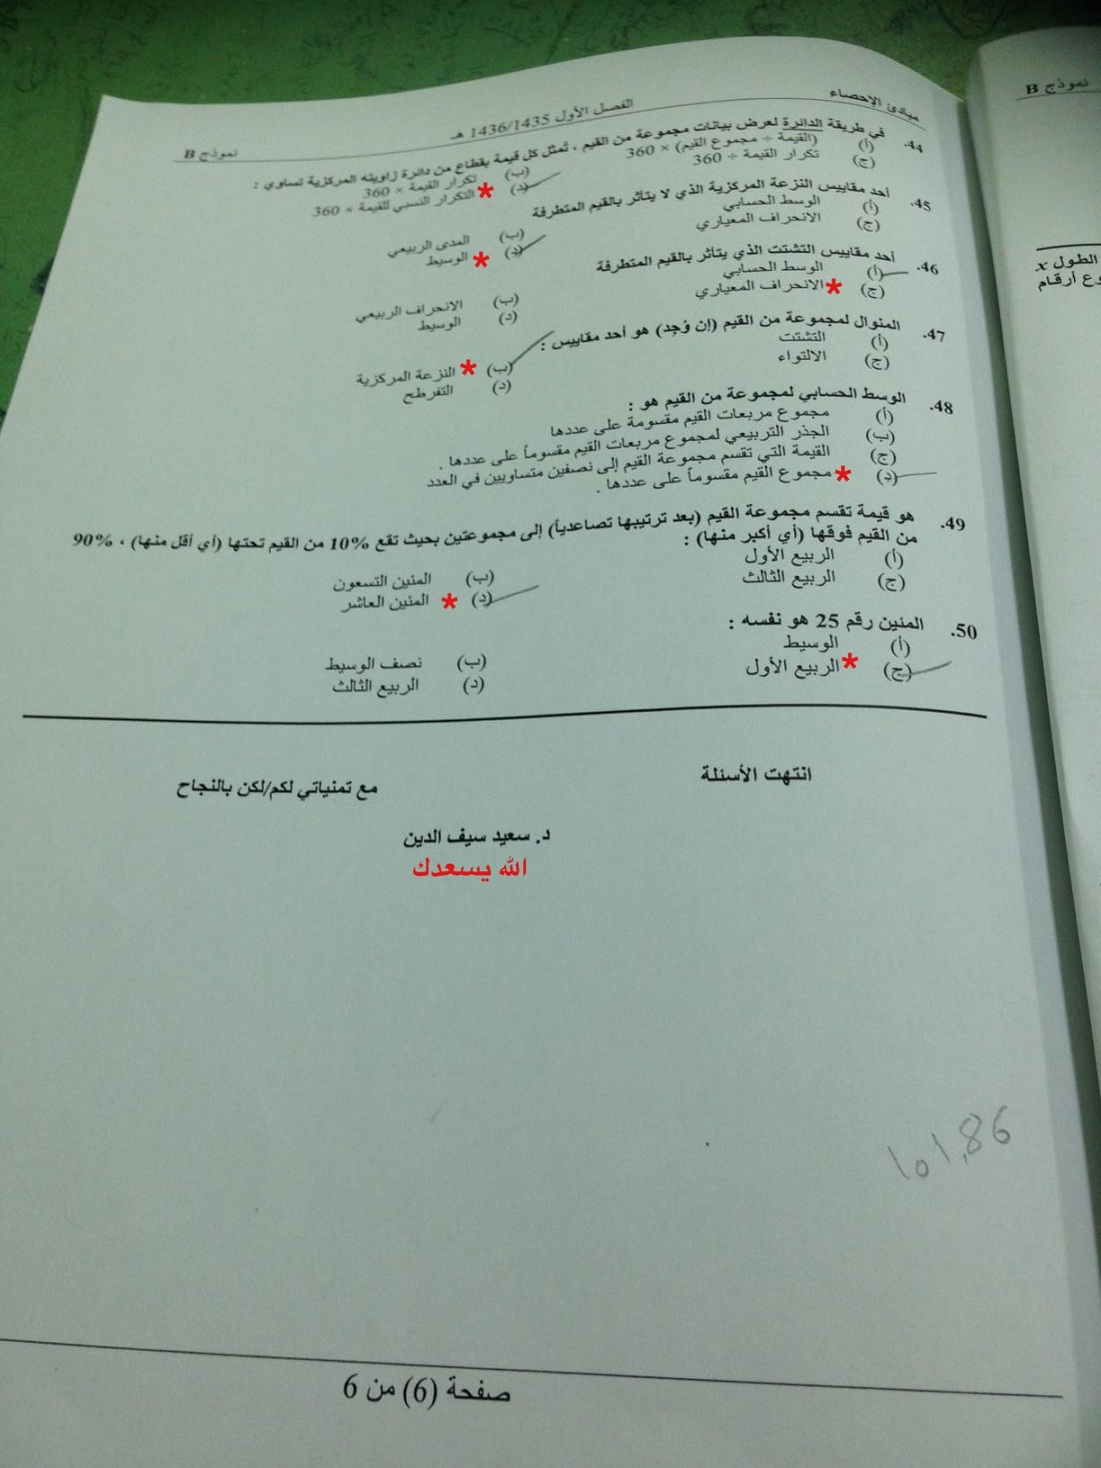 نموذج B
الطول x
وع أرقام
مبادئ الإحصاء
الفصل الأول 1436/1435 هـ
نموذج B
44. في طريقة الدائرة لعرض بيانات مجموعة من القيم ، تُمثل كل قيمة بقطاع من دائرة زاويته المركزية تساوي :
(أ) (القيمة ÷ مجموع القيم) × 360
(ب) تكرار القيمة × 360
(ج) تكرار القيمة ÷ 360
(د) * التكرار النسبي للقيمة × 360
45. أحد مقاييس النزعة المركزية الذي لا يتأثر بالقيم المتطرفة
(أ) الوسط الحسابي
(ب) المدى الربيعي
(ج) الانحراف المعياري
(د) * الوسيط
46. أحد مقاييس التشتت الذي يتأثر بالقيم المتطرفة
(أ) الوسط الحسابي
(ب) الانحراف الربيعي
(ج) * الانحراف المعياري
(د) الوسيط
47. المنوال لمجموعة من القيم (إن وُجد) هو أحد مقاييس :
(أ) التشتت
(ب) * النزعة المركزية
(ج) الالتواء
(د) التفرطح
48. الوسط الحسابي لمجموعة من القيم هو :
(أ) مجموع مربعات القيم مقسومة على عددها
(ب) الجذر التربيعي لمجموع مربعات القيم مقسوماً على عددها .
(ج) القيمة التي تقسم مجموعة القيم إلى نصفين متساويين في العدد
(د) * مجموع القيم مقسوماً على عددها .
49. هو قيمة تقسم مجموعة القيم (بعد ترتيبها تصاعدياً) إلى مجموعتين بحيث تقع 10% من القيم تحتها (أي أقل منها) ، 90%
من القيم فوقها (أي أكبر منها) :
(أ) الربيع الأول
(ب) المئين التسعون
(ج) الربيع الثالث
(د) * المئين العاشر
50. المئين رقم 25 هو نفسه :
(أ) الوسيط
(ب) نصف الوسيط
(ج) * الربيع الأول
(د) الربيع الثالث
انتهت الأسئلة
مع تمنياتي لكم/لكن بالنجاح
د. سعيد سيف الدين
الله يسعدك
101,86
صفحة (6) من 6